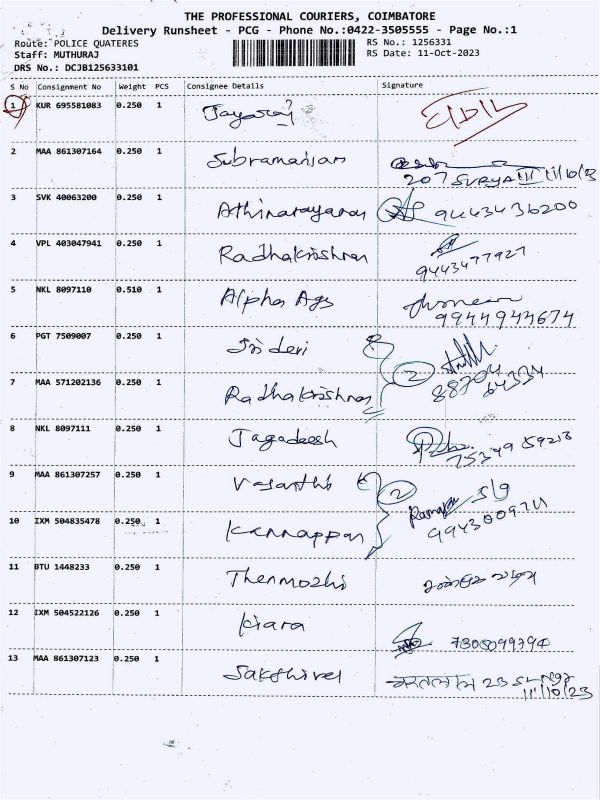 THE PROFESSIONAL COURIERS, COIMBATORE
Delivery Runsheet - PCG - Phone No.:0422-3505555 - Page No.:1
Route: POLICE QUATERES RS No.: 1256331
Staff: MUTHURAJ RS Date: 11-Oct-2023
DRS No.: DCJB125633101
S No Consignment No Weight PCS Consignee Details Signature
1 KUR 695581083 0.250 1 Jayaraj
2 MAA 861307164 0.250 1 Subramanian
207 SURYA 11/10/23
3 SVK 40063200 0.250 1 Athinarayanan 9443436200
4 VPL 403047941 0.250 1 Radhakrishnan
9443477927
5 NKL 8097110 0.510 1 Alpha Ags
9944944674
6 PGT 7509007 0.250 1 Sri devi
2 88704
64334
7 MAA 571202136 0.250 1 Radhakrishnan
8 NKL 8097111 0.250 1 Jagadeesh
75349 59213
9 MAA 861307257 0.250 1 Vasanthi 2 S/g
10 IXM 504835478 0.250 1 Kannappan
11 BTU 1448233 0.250 1 Thenmozhi
12 IXM 504522126 0.250 1 Kiara
7305099394
13 MAA 861307123 0.250 1 Sakthivel
11/10/23